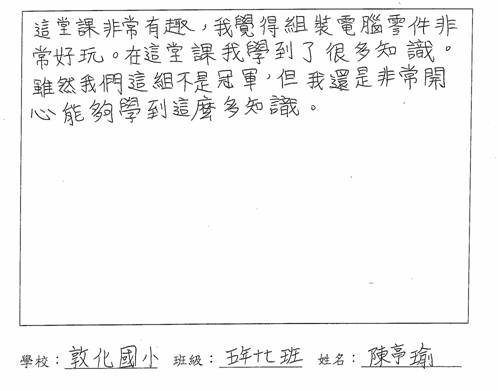 這堂課非常有趣，我覺得組裝電腦零件非
常好玩。在這堂課我學到了很多知識。
雖然我們這組不是冠軍，但我還是非常開
心能夠學到這麼多知識。
學校：敦化國小 班級：五年十七班 姓名：陳亭瑜